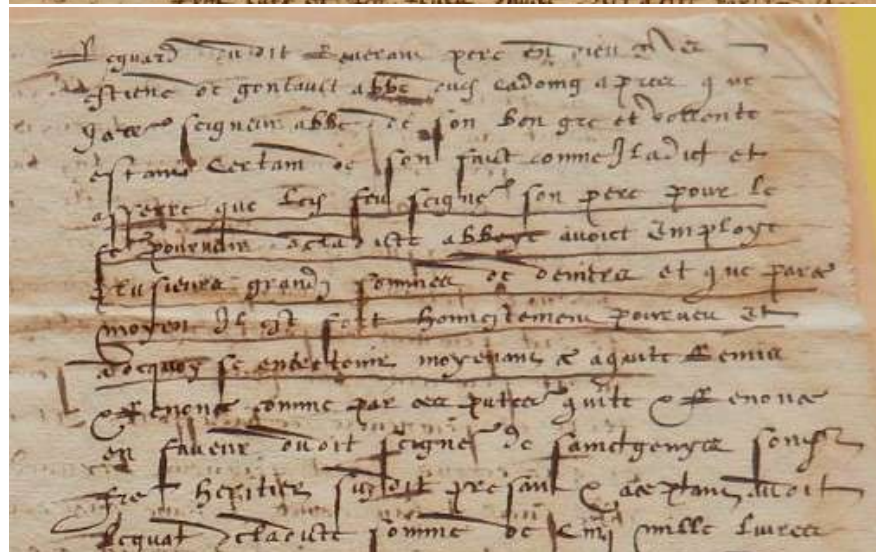 Lequard dudit Reverant pere en dieu
estiene de gontault abbe dudit cadoing apres que
seigneur abbe de son bon gre et vollente
estant certain de son faict comme Il a dict et
que ledit feu seigneur son pere pour le
fe pourvoir de ladicte abbaye avoict Employe
plusieurs grandz sommes de deniers et que par ce
moyen Il est fort honnestement pourveu Et
a de quoy se entretenir moyenant ce a quite Remis
et Renonce comme par ces presentes quite et Renonce
en faveur dudit seigneur de sainctgenyes son
frere heritier susdit presant et aceptant
de ladicte somme de mille livres